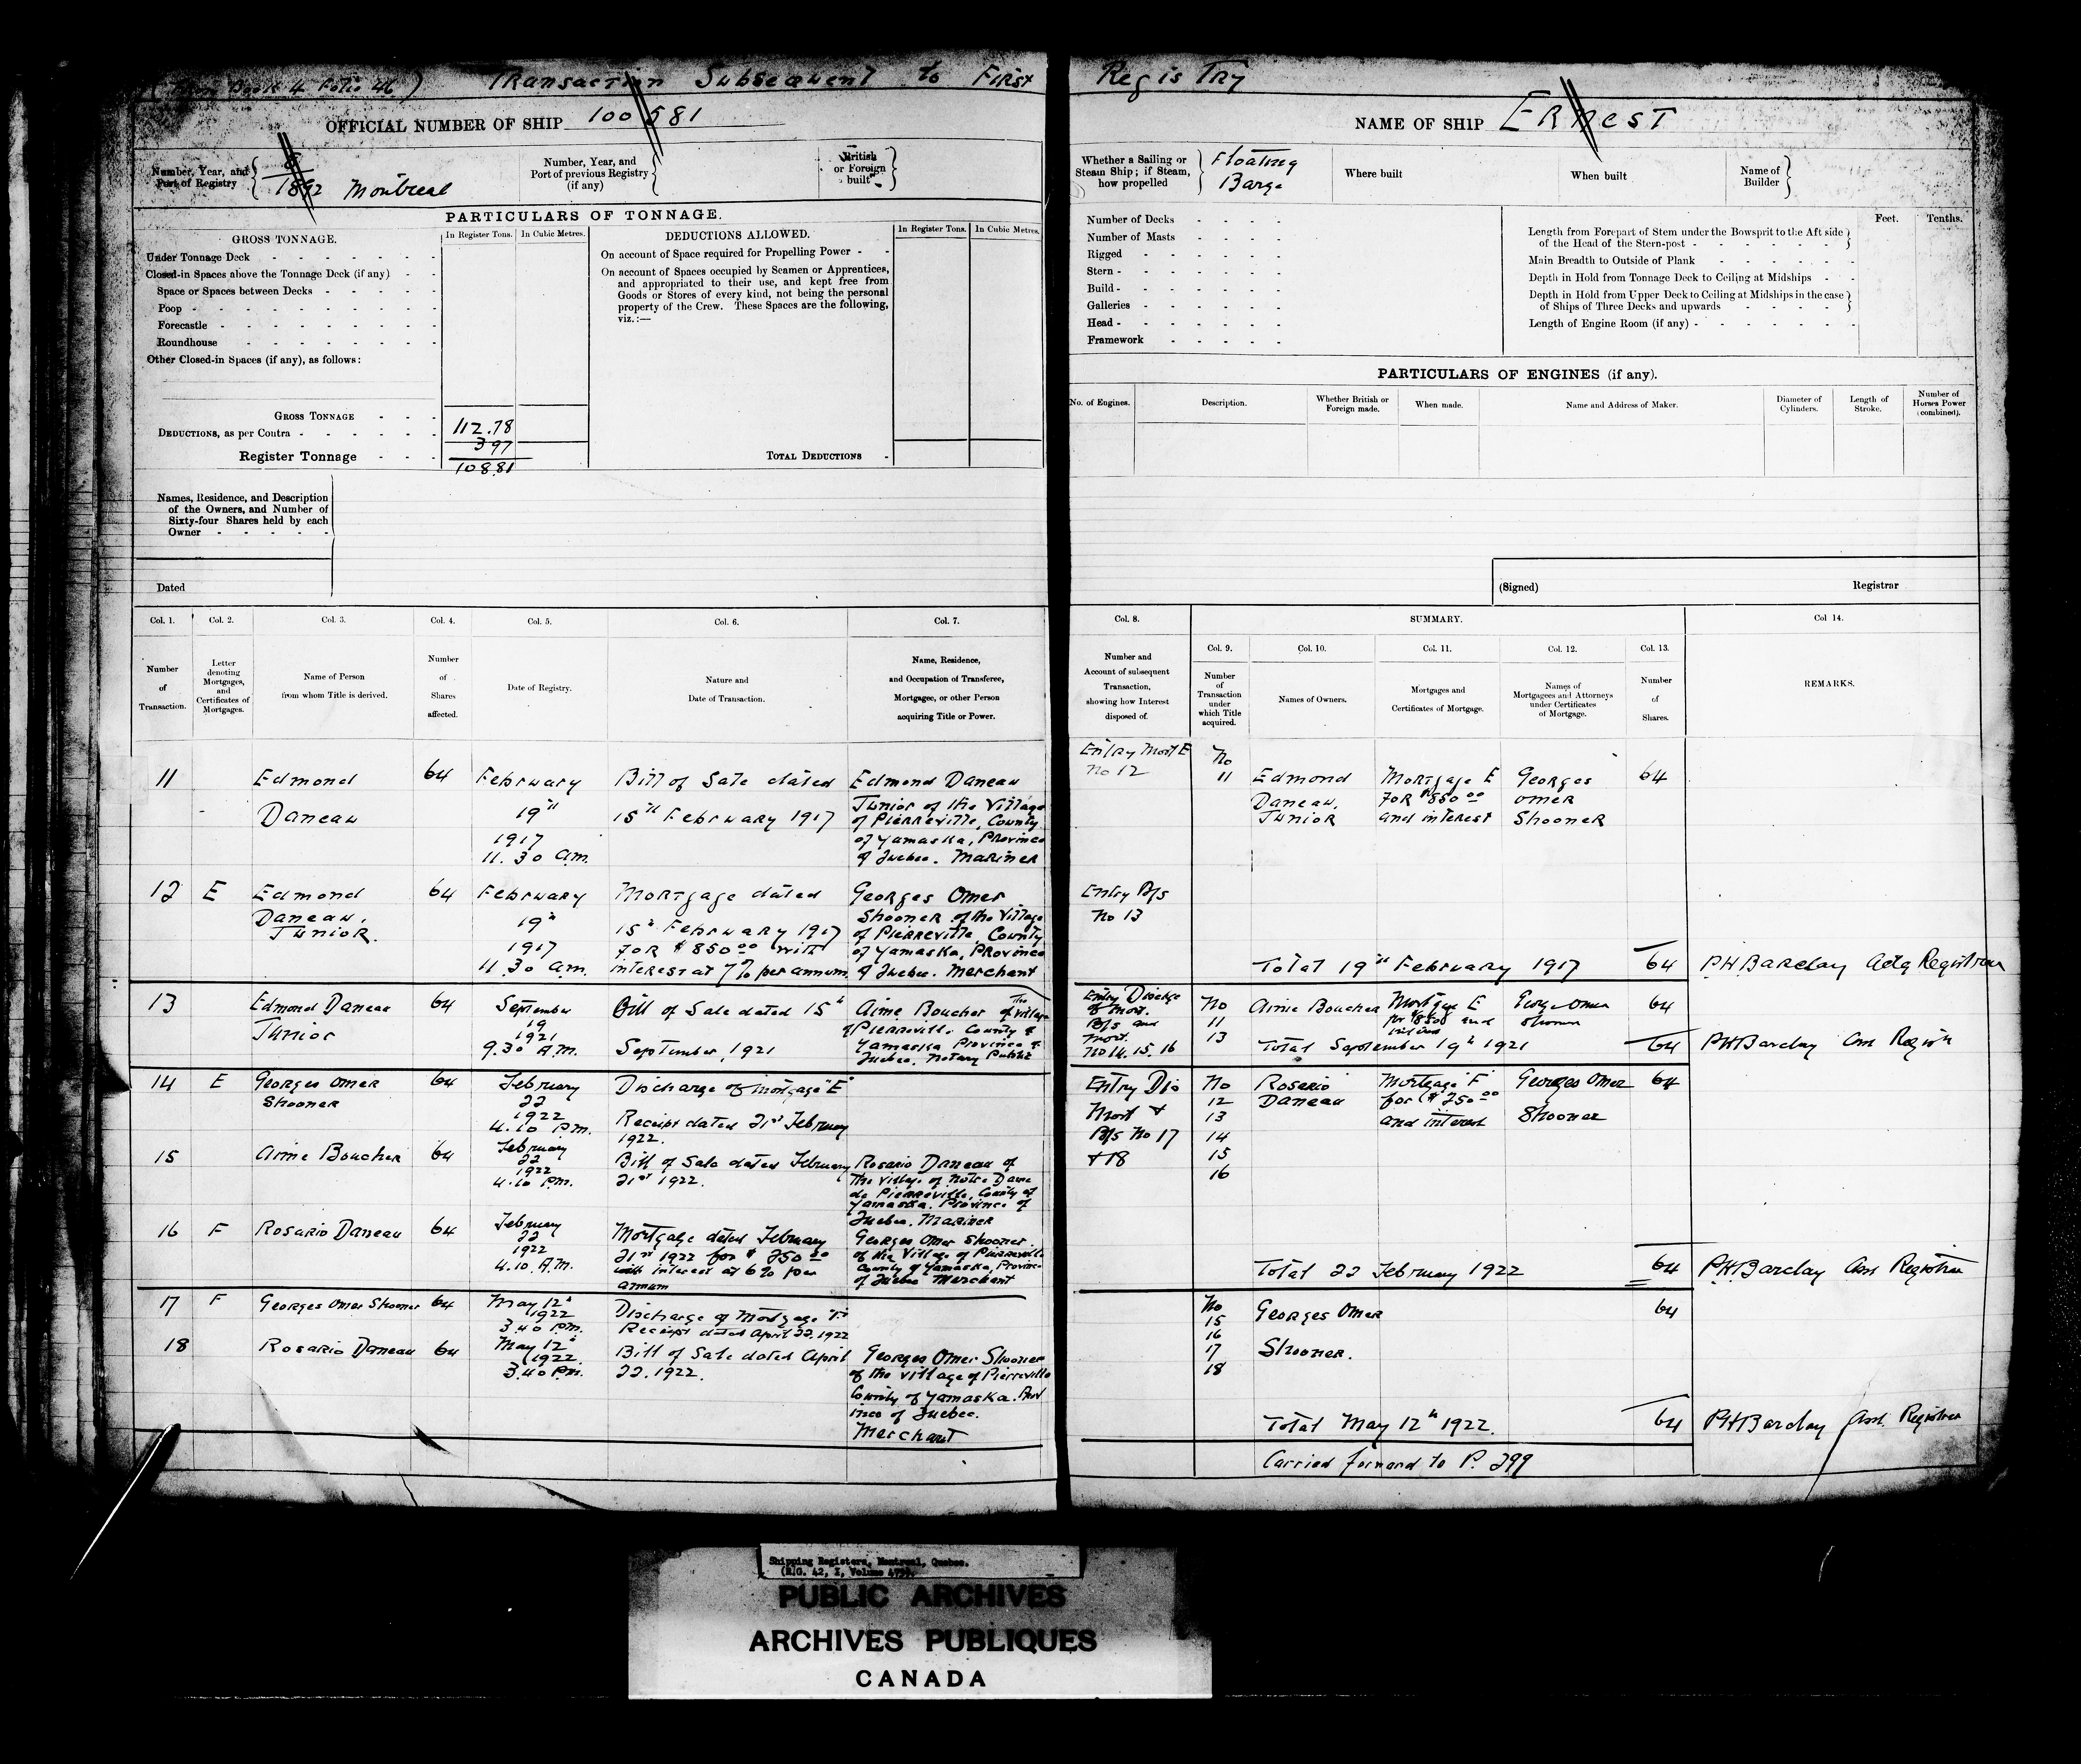 Book 4 Folio 46) Transaction Subsequent to First Registry
OFFICIAL NUMBER OF SHIP 100581
NAME OF SHIP Ernest
Number, Year, and
Port of Registry
1892 Montreal
Number, Year, and
Port of previous Registry
(if any)
British
or Foreign
built
Whether a Sailing or
Steam Ship; if Steam,
how propelled
Floating
Barge
Where built
When built
Name of
Builder
PARTICULARS OF TONNAGE.
GROSS TONNAGE.
In Register Tons.
In Cubic Metres.
Under Tonnage Deck
Closed-in Spaces above the Tonnage Deck (if any)
Space or Spaces between Decks
Poop
Forecastle
Roundhouse
Other Closed-in Spaces (if any), as follows:
GROSS TONNAGE 112.78
DEDUCTIONS, as per Contra 397
Register Tonnage 108.81
DEDUCTIONS ALLOWED.
In Register Tons.
In Cubic Metres.
On account of Space required for Propelling Power
On account of Spaces occupied by Seamen or Apprentices,
and appropriated to their use, and kept free from
Goods or Stores of every kind, not being the personal
property of the Crew. These Spaces are the following,
viz.:—
TOTAL DEDUCTIONS
Number of Decks
Number of Masts
Rigged
Stern
Build
Galleries
Head
Framework
Feet.
Tenths.
Length from Forepart of Stem under the Bowsprit to the Aft side
of the Head of the Stern-post
Main Breadth to Outside of Plank
Depth in Hold from Tonnage Deck to Ceiling at Midships
Depth in Hold from Upper Deck to Ceiling at Midships in the case
of Ships of Three Decks and upwards
Length of Engine Room (if any)
PARTICULARS OF ENGINES (if any).
No. of Engines.
Description.
Whether British or
Foreign made.
When made.
Name and Address of Maker.
Diameter of
Cylinders.
Length of
Stroke.
Number of
Horses Power
(combined).
Names, Residence, and Description
of the Owners, and Number of
Sixty-four Shares held by each
Owner
Dated
(Signed)
Registrar
Col. 1.
Number
of
Transaction.
Col. 2.
Letter
denoting
Mortgages,
and
Certificates of
Mortgages.
Col. 3.
Name of Person
from whom Title is derived.
Col. 4.
Number
of
Shares
affected.
Col. 5.
Date of Registry.
Col. 6.
Nature and
Date of Transaction.
Col. 7.
Name, Residence,
and Occupation of Transferee,
Mortgagee, or other Person
acquiring Title or Power.
Col. 8.
Number and
Account of subsequent
Transaction,
showing how Interest
disposed of.
SUMMARY.
Col. 9.
Number
of
Transaction
under
which Title
acquired.
Col. 10.
Names of Owners.
Col. 11.
Mortgages and
Certificates of Mortgage.
Col. 12.
Names of
Mortgagees and Attorneys
under Certificates
of Mortgage.
Col. 13.
Number
of
Shares.
Col 14.
REMARKS.
11
Edmond
Daneau
64
February
19th
1917
11.30 a.m.
Bill of Sale dated
15th February 1917
Edmond Daneau
Junior of the Village
of Pierreville, County
of Yamaska, Province
of Quebec. Mariner
Entry Mort E
No 12
No
11
Edmond
Daneau,
Junior
Mortgage E
for $850 00
and interest
Georges
Omer
Shooner
64
12
E
Edmond
Daneau,
Junior.
64
February
19th
1917
11.30 a.m.
Mortgage dated
15th February 1917
for $850 00 with
interest at 7% per annum
Georges Omer
Shooner of the Village
of Pierreville County
of Yamaska, Province
of Quebec. Merchant
Entry B/s
No 13
Total 19th February 1917 64
PHBarclay Actg Registrar
13
Edmond Daneau
Junior
64
September
19
1921
9.30 A.M.
Bill of Sale dated 15th
September, 1921
Aime Boucher of the village
of Pierreville County of
Yamaska Province of
Quebec, Notary Public
Entry Discge
of Mort.
B/s and
Mort.
No 14. 15. 16
No
11
13
Aime Boucher
Mortgage E
for $850 and
interest
George Omer
Shooner
64
Total September 19th 1921 64
PHBarclay
14
E
Georges Omer
Shooner
64
February
22
1922
4.10 P.M.
Discharge of mortgage "E"
Receipt dated 21st February
1922.
Entry Dis
Mort &
B/s No 17
& 18
No
12
13
14
15
16
Rosario
Daneau
Mortgage "F"
for ($250 00
and interest
Georges Omer
Shooner
64
15
Aime Boucher
64
February
22
1922
4.10 P.M.
Bill of Sale dated February
21st 1922.
Rosario Daneau of
the Village of Notre Dame
de Pierreville, County of
Yamaska. Province of
Quebec. Mariner
16
F
Rosario Daneau
64
February
22
1922
4.10. A.M.
Mortgage dated February
21st 1922 for $250 00
with interest at 6% per
annum
Georges Omer Shooner
of the Village of Pierreville
County of Yamaska, Province
of Quebec Merchant
Total 22 February 1922 64
PHBarclay Asst Registrar
17
F
Georges Omer Shooner
64
May 12th
1922
3.40 P.M.
Discharge of Mortgage "F"
Receipt dated April 22. 1922
No
15
16
17
18
Georges Omer
Shooner.
64
18
Rosario Daneau
64
May 12th
1922
3.40 P.M.
Bill of Sale dated April
22. 1922.
Georges Omer Shooner
of the village of Pierreville
County of Yamaska. Prov
ince of Quebec.
Merchant
Total May 12th 1922. 64
PHBarclay Asst. Registrar
Carried forward to P. 299
Shipping Registers, Montreal, Quebec.
(R.G. 42, I, Volume
PUBLIC ARCHIVES
ARCHIVES PUBLIQUES
CANADA